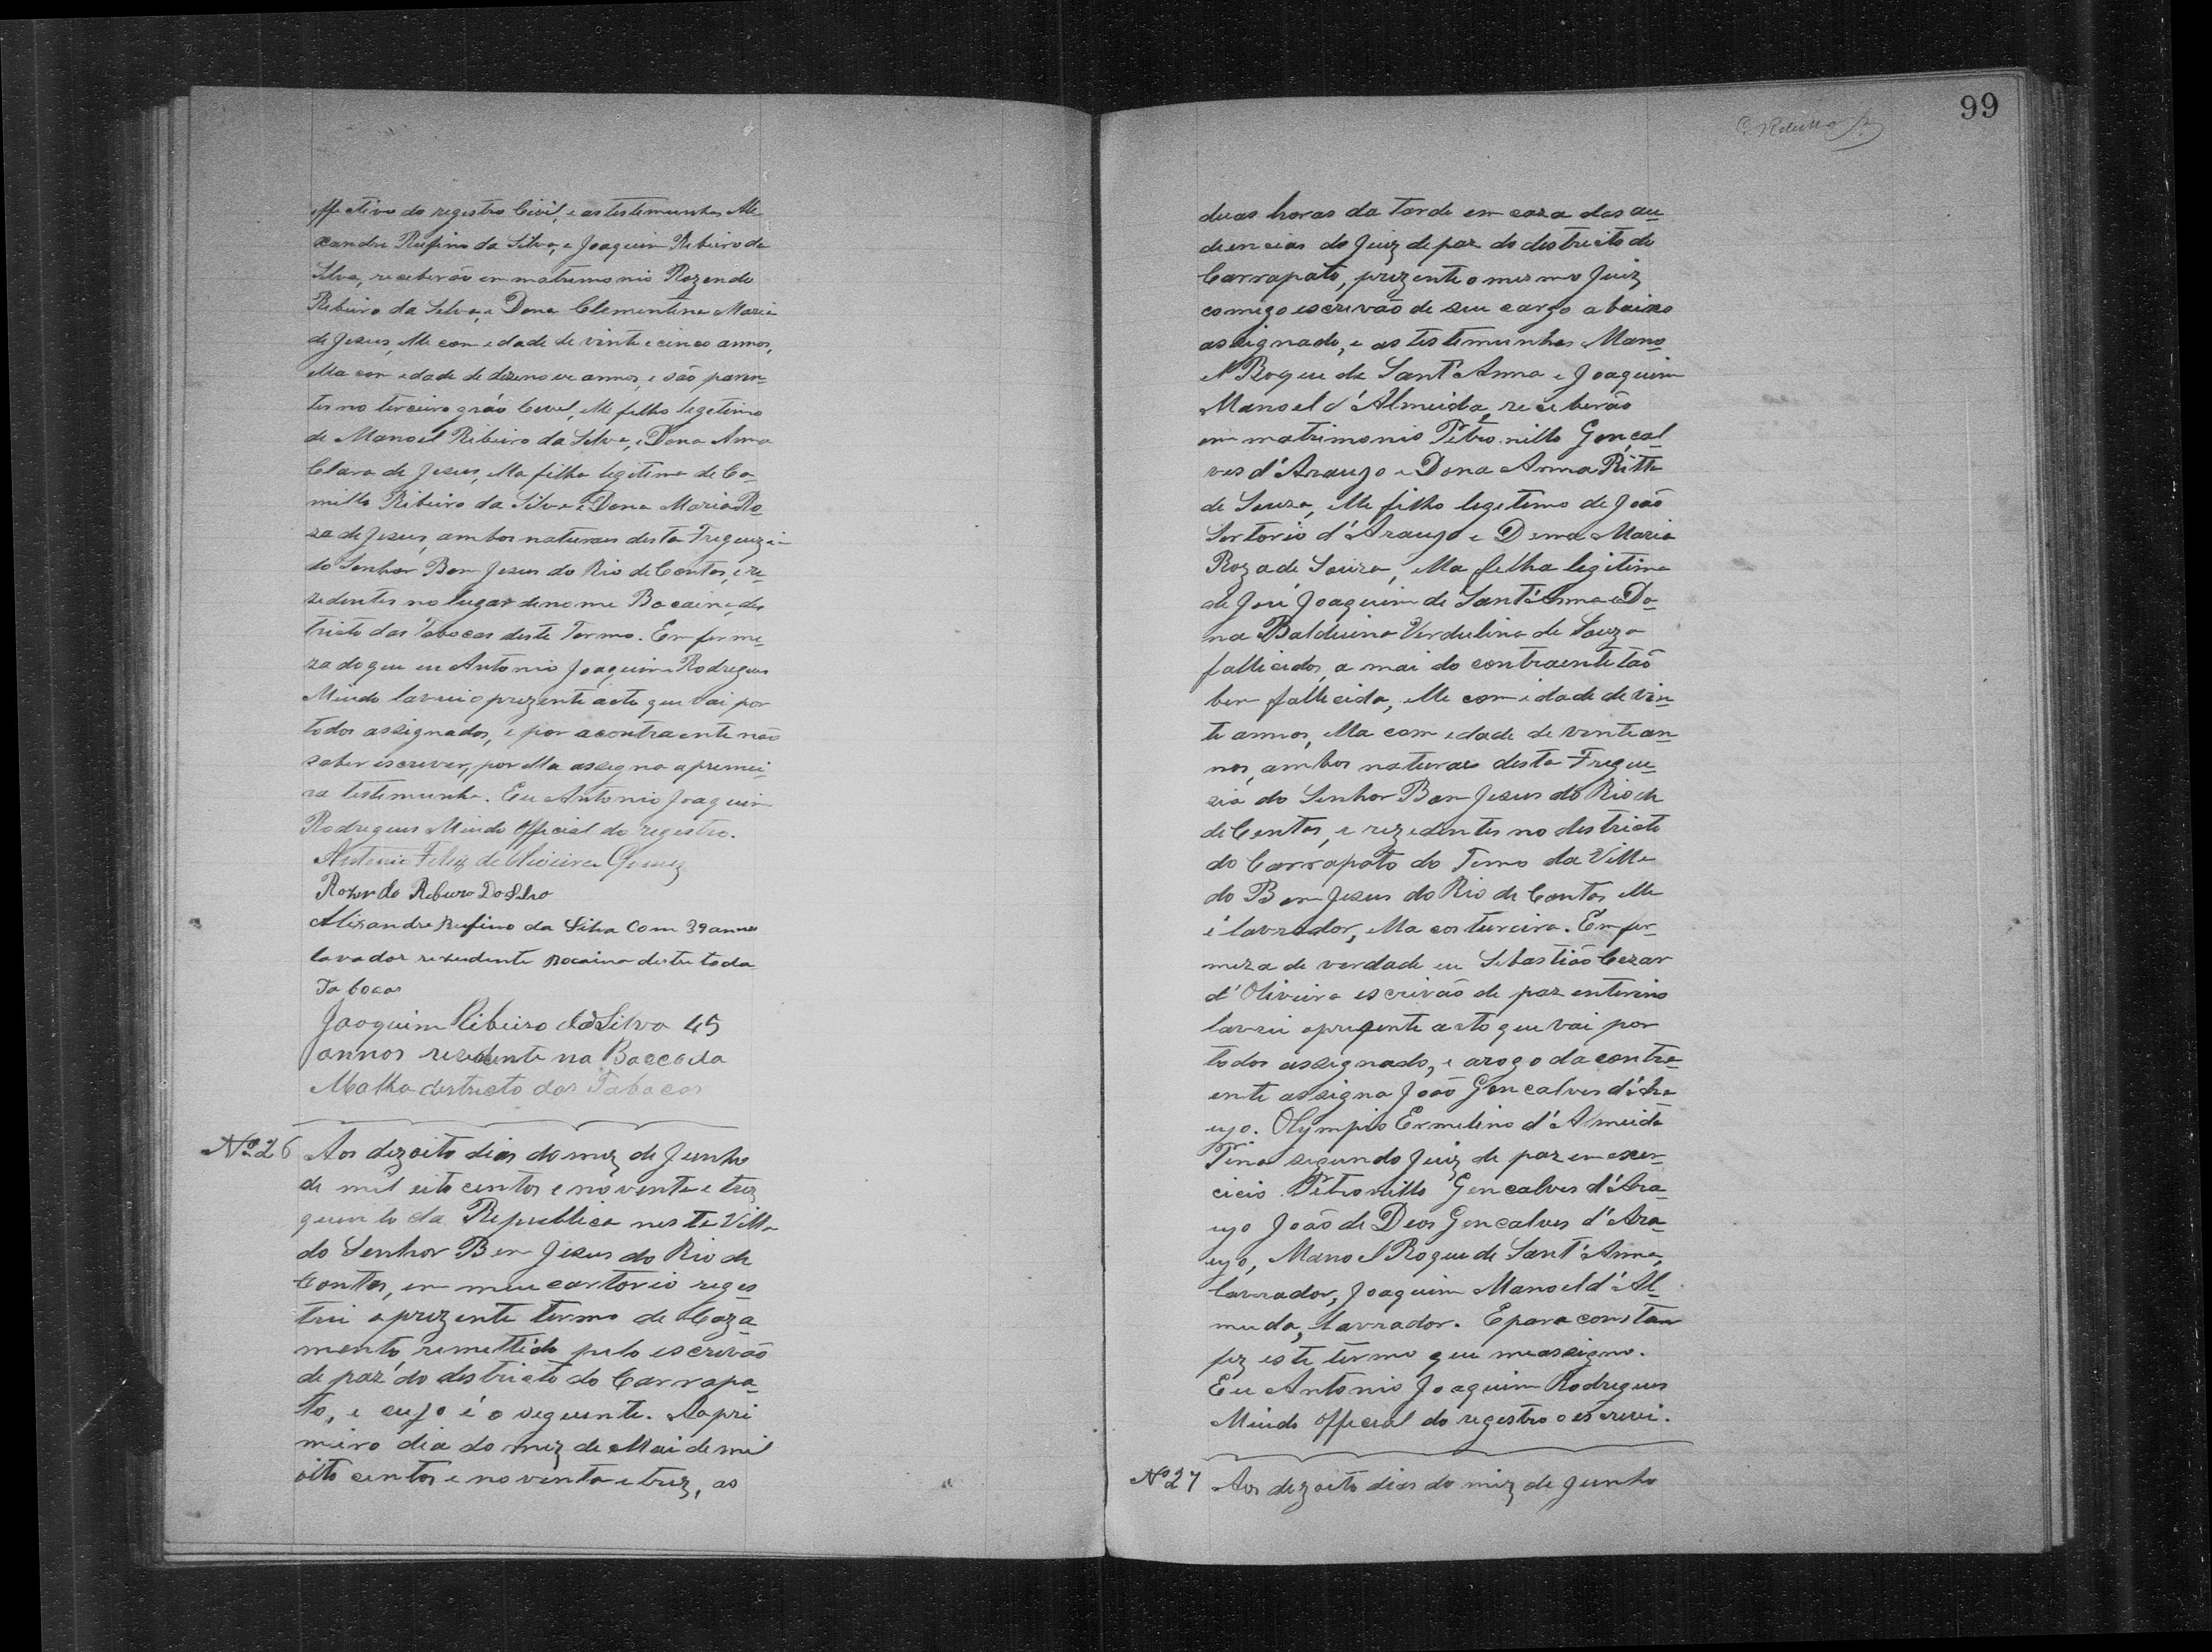 effectivo do registro Civil, e as testemunhas Ale
xandre Rufino da Silva, e Joaquim Ribeiro da
Silva, receberão em matrimonio Rozendo
Ribeiro da Silva, e Dona Clementina Maria
de Jesus, elle com edade de vinte e cinco annos,
ella com edade de dezenove annos, e são paren-
tes no terceiro gráo Cevel, elle filho legetimo
de Manoel Ribeiro da Silva, e Dona Anna
Clara de Jesus, ella filha legitima de Ca-
millo Ribeiro da Silva e Dona Maria Ro-
za de Jesus, ambos naturaes desta Freguezia
do Senhor Bom Jesus do Rio de Contas, e re-
zedentes no lugar de nome Bocaina, des
tricto das Tabocas deste Termo. Em firme
za do que eu Antonio Joaquim Rodrigues
Miudo lavrei o prezente acto que vai por
todos assignados, e por a contraente não
saber escrever, por ella assigna a primei-
ra testemunha. Eu Antonio Joaquim
Rodrigues Miudo Official do registro.
Antonio Feliz de Oliveira Gomes
Rozendo Ribeiro Da Silva
Alixandre Rufino da Silva Com 39 annos
lavador rezidente Bocaina destrito da
Tabocas
Joaquim Ribeiro da Silva 45
annos residente na Bocca da
Matta destricto das Tabocas
Nº 26 Aos dezoito dias do mez de Junho
de mil oito centos e noventa e trez
quinto da Republica nesta Villa
do Senhor Bom Jesus do Rio de
Contas, em meu cartorio reges
trei o prezente termo de Caza
mento remettido pelo escrivão
de paz do destricto do Carrapa-
to, e cujo é o seguinte. Ao pri
meiro dia do mez de Mai de mil
oito centos e noventa e trez, as
99
duas horas da tarde em caza das au
diencias do Juiz de paz do destricto do
Carrapato, prezente o mesmo Juiz
comigo escrivão de seu cargo abaixo
assignado, e as testemunhas Mano
el Roque de Sant'Anna e Joaquim
Manoel d'Almeida, receberão
em matrimonio Petronillo Gonçal
ves d'Araujo e Dona Anna Ritta
de Souza, elle filho legetimo de João
Sertorio d'Araujo e Dona Maria
Roza de Souza, ella filha legitima
de José Joaquim de Sant'Anna e Do-
na Balduina Verdulina de Souza
fallicidos, a mai do contraente tão
bem fallicida, elle com idade de vin
te annos, ella com edade de vinte an
nos, ambos naturaes desta Fregue-
sia do Senhor Bom Jesus do Rio de
de Contas, e rezedentes no destricto
do Carrapato do Termo da Villa
do Bom Jesus do Rio de Contas elle
é lavrador, ella costureira. Em fir-
meza de verdade eu Sebastião Cezar
d'Oliveira escrivão de paz enterino
lavrei o prezente acto que vai por
todos assignado, e arogo da contra-
ente assigna João Goncalves d'Ara
ujo. Olympio Ermelino d'Almeida
Tina segundo Juiz de paz em exer-
cicio. Petronillo Goncalves d'Ara-
ujo João de Deos Goncalves d'Ara-
ujo, Manoel Roque de Sant'Anna,
lavrador, Joaquim Manoel d'Al-
meida, lavrador. E para constar
fiz este termo que meassigno.
Eu Antonio Joaquim Rodrigues
Miudo Official do registro o escrevi.
Nº 27 Aos dezoito dias do mez de Junho